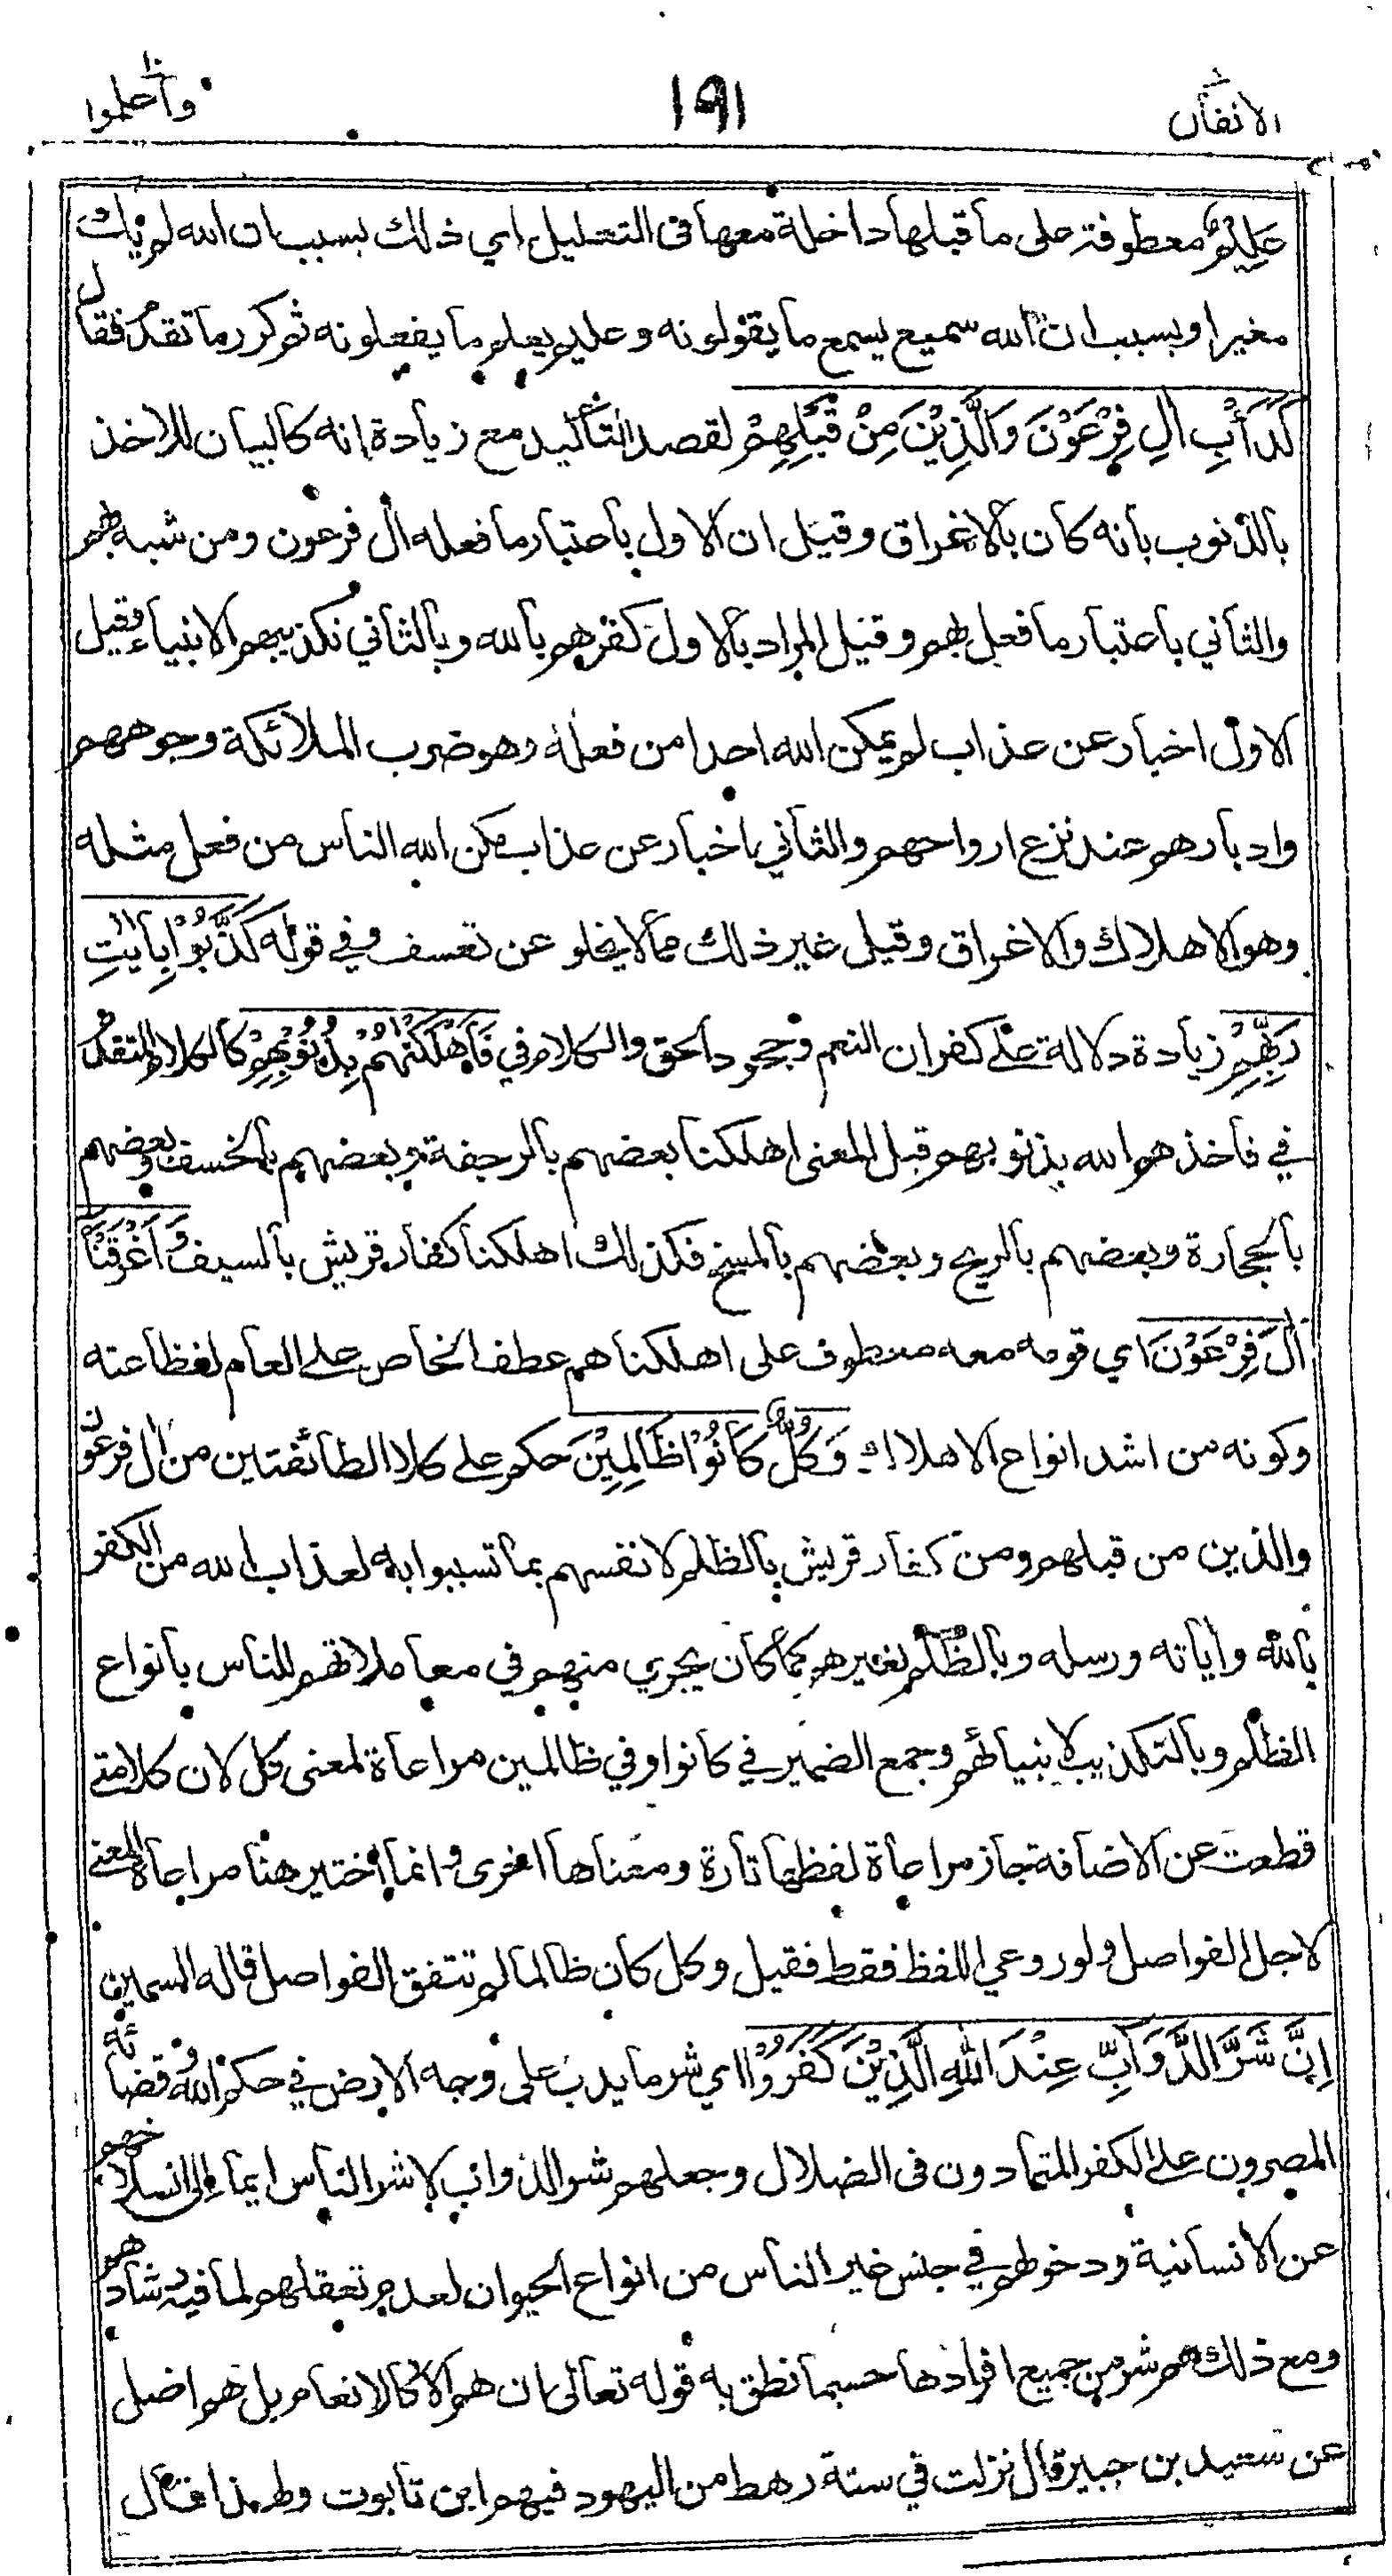 الانفال ٨
١٩١
واعلموا ١٠
عَلِيْمٌ معطوفة على ما قبلها داخلة معها فى التعليل اي ذلك بسبب ان الله لم يك
مغيرا وبسبب ان الله سميع يسمع ما يقولونه وعليم يعلم ما يفعلونه ثم كرر ما تقدم فقال
كَدَأْبِ اٰلِ فِرْعَوْنَ وَالَّذِيْنَ مِنْ قَبْلِهِمْ لقصد التأكيد مع زيادة انه كالبيان للاخذ
بالذنوب بانه كان بالاغراق وقيل ان الاول باعتبار ما فعله اٰل فرعون ومن شبه بهم
والثاني باعتبار ما فعل بهم وقيل المراد بالاول كفرهم بالله وبالثاني تكذيبهم الانبياء وقيل
الاول اخبار عن عذاب لم يمكن الله احدا من فعله وهو ضرب الملائكة وجوههم
وادبارهم عند نزع ارواحهم والثاني اخبار عن عذاب مكن الله الناس من فعل مثله
وهو الاهلاك والاغراق وقيل غير ذلك مما لا يخلو عن تعسف وفي قوله كَذَّبُوْا بِاٰيٰتِ
رَبِّهِمْ زيادة دلالة على كفران النعم وجحود الحق والكلام في فَاَهْلَكْنٰهُمْ بِذُنُوْبِهِمْ كالكلام المتقدم
في فاخذهم الله بذنوبهم قيل المعنى اهلكنا بعضهم بالرجفة وبعضهم بالخسف وبعضهم
بالحجارة وبعضهم بالريح وبعضهم بالمسخ فكذلك اهلكنا كفار قريش بالسيف وَاَغْرَقْنَا
اٰلَ فِرْعَوْنَ اي قومه معه معطوف على اهلكناهم عطف الخاص على العام لفظاعته
وكونه من اشد انواع الاهلاك وَكُلٌّ كَانُوْا ظَالِمِيْنَ حكم على كلا الطائفتين من اٰل فرعون
والذين من قبلهم ومن كفار قريش بالظلم لانفسهم بما تسببوا به لعذاب الله من الكفر
بالله واٰياته ورسله وبالظلم لغيرهم كما كان يجري منهم في معاملاتهم للناس بانواع
الظلم وبالتكذيب لانبيائهم وجمع الضمير في كانوا وفي ظالمين مراعاة لمعنى كل لان كلا متى
قطعت عن الاضافة جاز مراعاة لفظها تارة ومعناها اخرى وانما اختير هنا مراعاة المعنى
لاجل الفواصل ولو روعي اللفظ فقط فقيل وكل كان ظالما لم تتفق الفواصل قاله السمين
اِنَّ شَرَّ الدَّوَآبِّ عِنْدَ اللّٰهِ الَّذِيْنَ كَفَرُوْا اي شر ما يدب على وجه الارض في حكم الله وقضائه
المصرون على الكفر المتمادون فى الضلال وجعلهم شر الدواب لا شر الناس ايماء الى انسلاخهم
عن الانسانية ودخولهم في جنس غير الناس من انواع الحيوان لعدم تعقلهم لما فيه رشادهم
ومع ذلك هم شر من جميع افرادها حسبما نطق به قوله تعالى ان هم الا كالانعام بل هم اضل
عن سعيد بن جبير قال نزلت في ستة رهط من اليهود فيهم ابن تابوت ولهذا قال